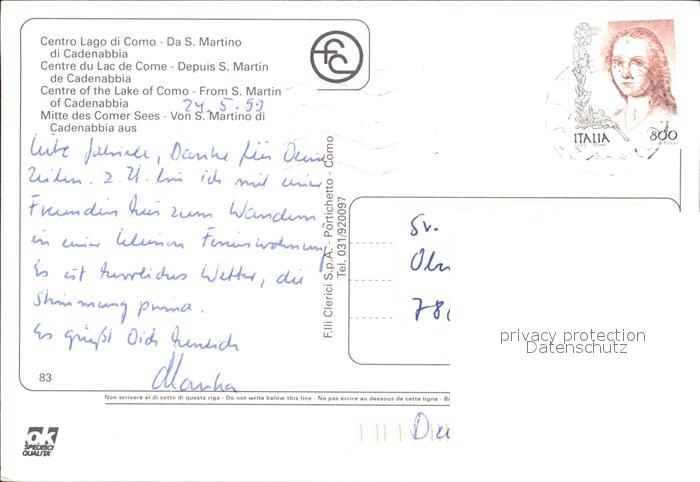 Centro Lago di Como - Da S. Martino
di Cadenabbia
Centre du Lac de Come - Depuis S. Martin
de Cadenabbia
Centre of the Lake of Como - From S. Martin
of Cadenabbia
24.5.99
Mitte des Comer Sees - Von S. Martino di
Cadenabbia aus
Danke für Deine
Zeilen. z. Zt. bin ich mit einer
Freundin hier zum Wandern
in einer kleinen Ferienwohnung
Es ist herrliches Wetter, die
Stimmung prima.
Es grüßt Dich herzlich
83
F.lli Clerici S.p.A. - Portichetto - Como
Tel. 031/920097
ITALIA 800
Fr.
780
privacy protection
Datenschutz
Non scrivere al di sotto di questa riga - Do not write below this line - Ne pas ecrire au dessous de cette ligne - Bi
ok
SPEDISCI
QUALITÀ